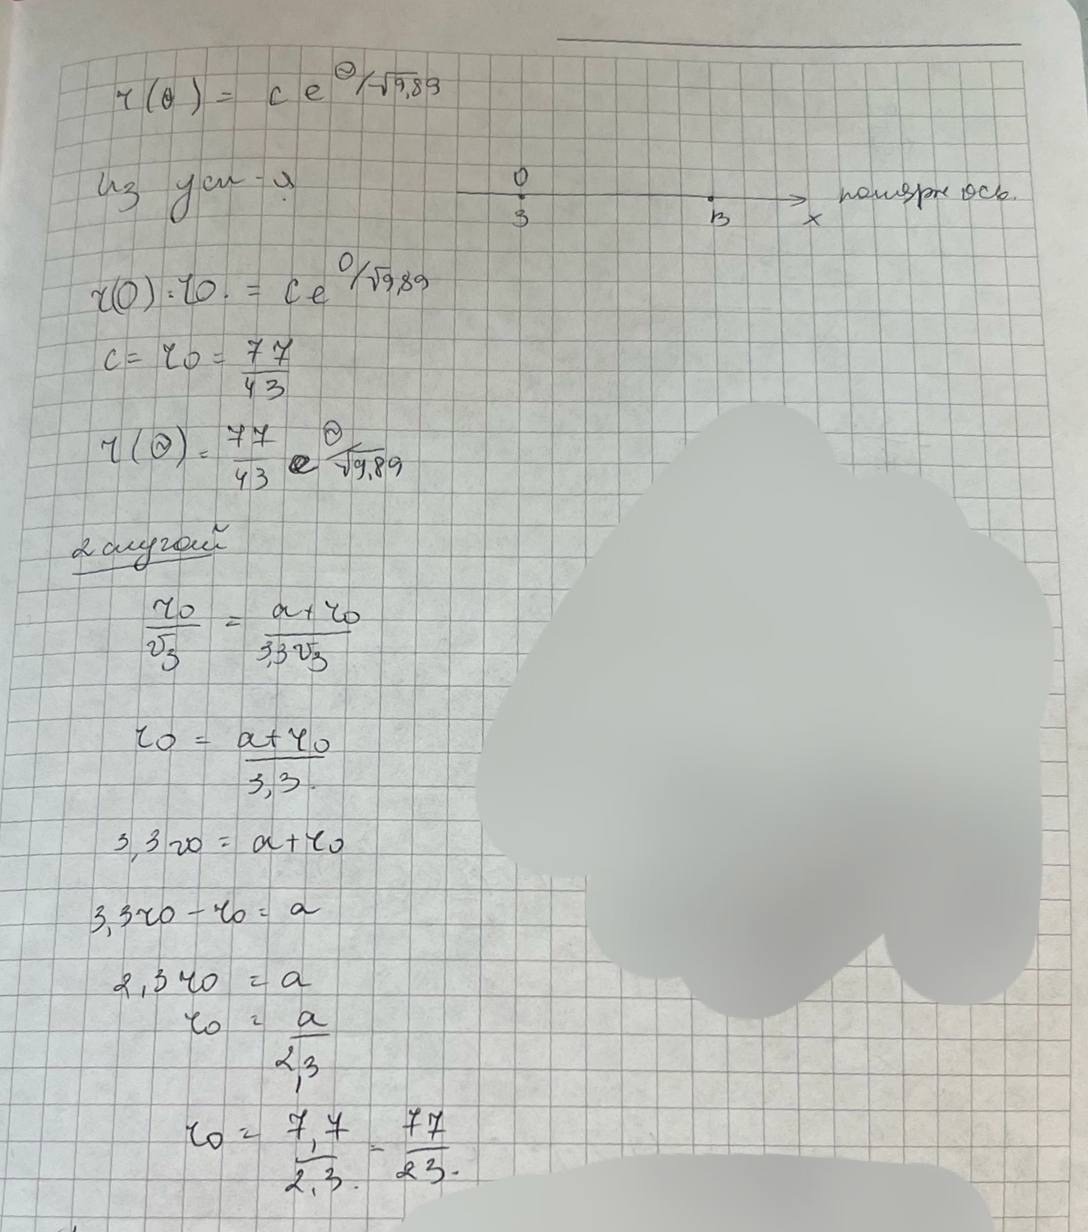 r(θ) = c e^θ/√9,89
Из усл-я
0
3 B x полярн ось.
r(0) = r0. = c e^0/√9,89
c = r0 = 77/43
r(θ) = 77/43 e^θ/√9,89
2 случай
r0/v3 = a+r0/3,3v3
r0 = a+r0/3,3.
3,3r0 = a+r0
3,3r0 - r0 = a
2,3r0 = a
r0 = a/2,3
r0 = 7,7/2,3. = 77/23.